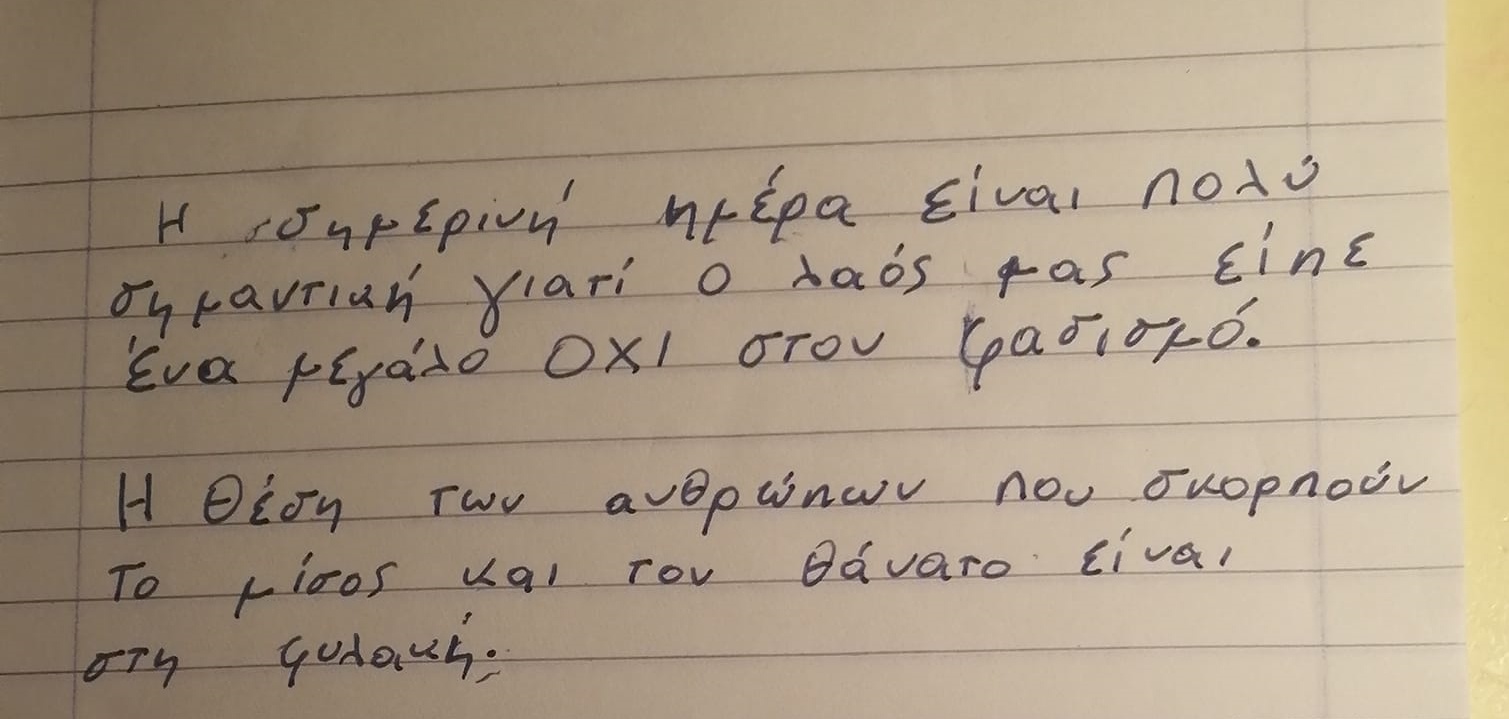 Η σημερινή ημέρα είναι πολύ
σημαντική γιατί ο λαός μας είπε
ένα μεγάλο ΟΧΙ στον φασισμό.
Η θέση των ανθρώπων που σκορπούν
το μίσος και τον θάνατο είναι
στη φυλακή.